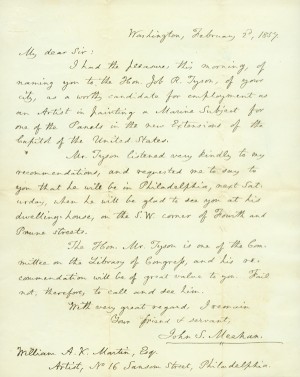 Washington, February 2d, 1857.
My dear Sir:
I had the pleasure, this morning, of
naming you to the Hon. Job R. Tyson, of your
city, as a worthy candidate for employment as
an Artist in painting a Marine Subject for
one of the Panels in the new Extensions of the
Capitol of the United States.
Mr. Tyson listened very kindly to my
recommendations, and requested me to say to
you that he will be in Philadelphia, next Sat-
urday, when he will be glad to see you at his
dwelling-house, on the S.W. corner of Fourth and
Prune streets.
The Hon. Mr. Tyson is one of the Com-
mittee on the Library of Congress, and his re-
commendation will be of great value to you. Fail
not, therefore, to call and see him.
With very great regard, I remain
Your friend & servant,
John S. Meehan.
William A. K. Martin, Esq.
Artist, No 16 Sansom Street, Philadelphia.